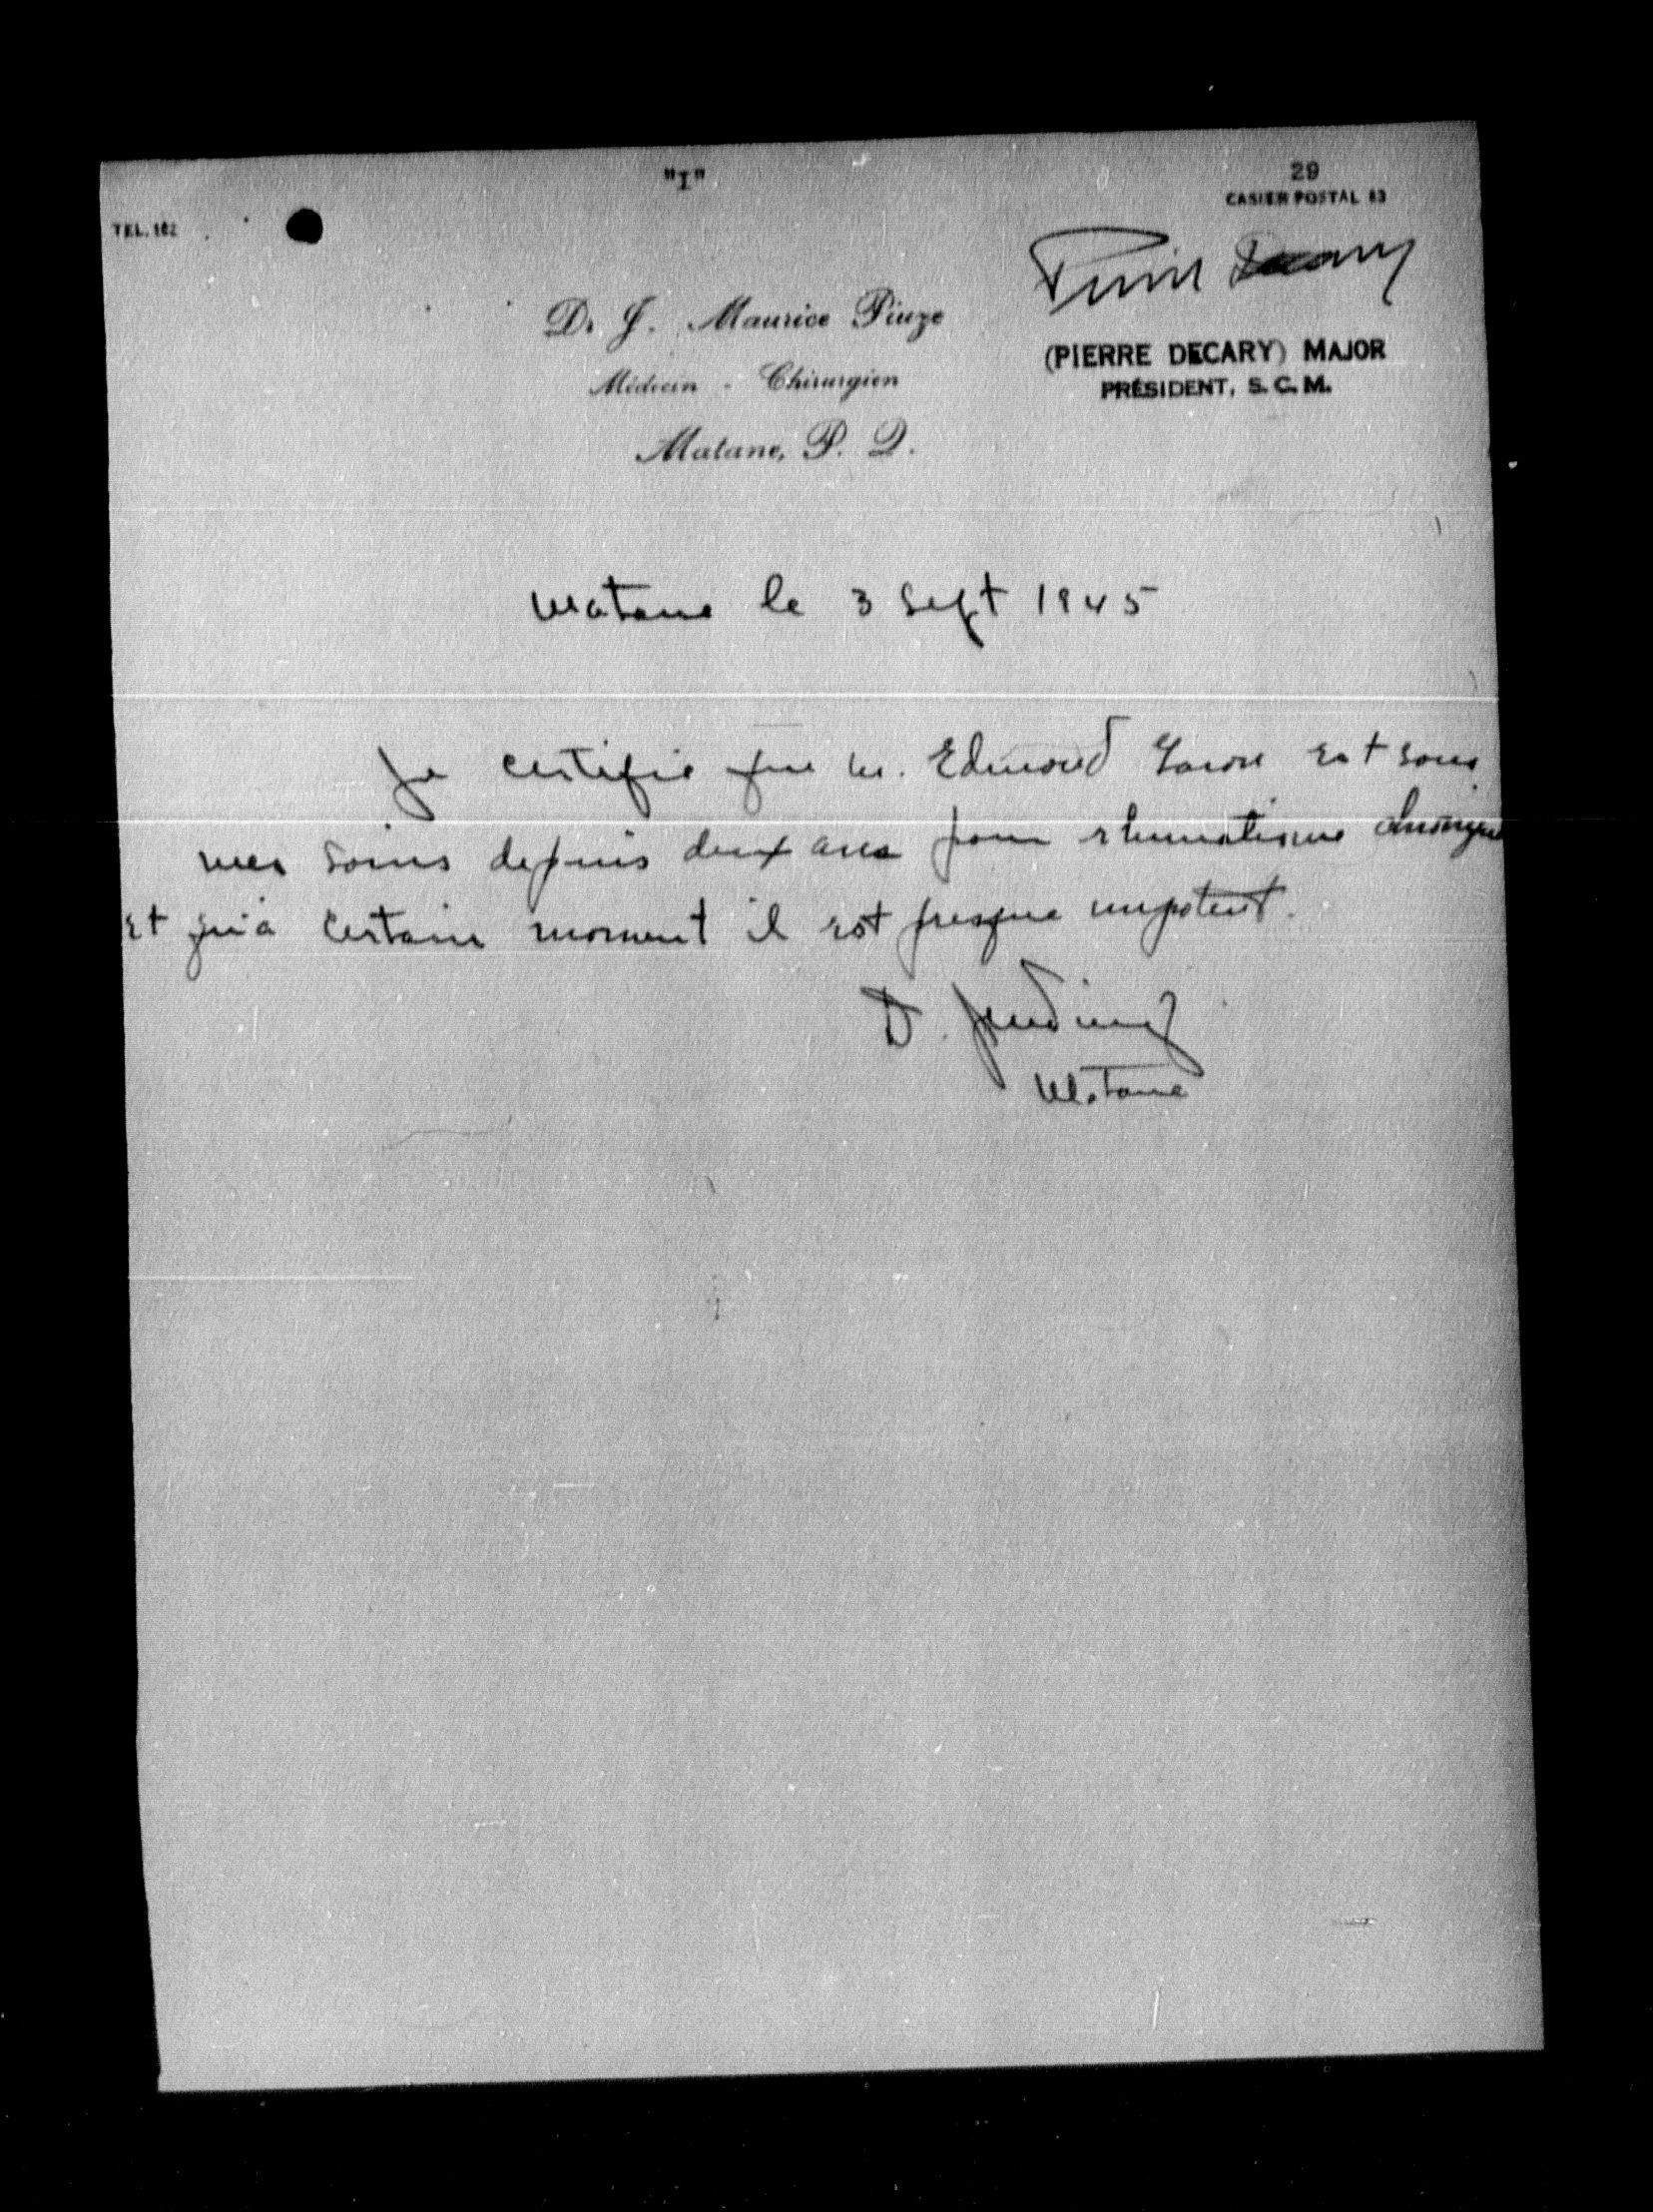 "I"
29
CASIER POSTAL 83
TEL. 162
Pierre Decary
Dr J. Maurice Piuze
(PIERRE DECARY) MAJOR
Médecin - Chirurgien
PRÉSIDENT, S. C. M.
Matane, P. Q.
Matane le 3 Sept 1945
Je certifie que M. Edmond est sous
mes soins depuis deux ans pour rhumatisme chronique
et qu'à certain moment il est presque impotent.
D.
Matane